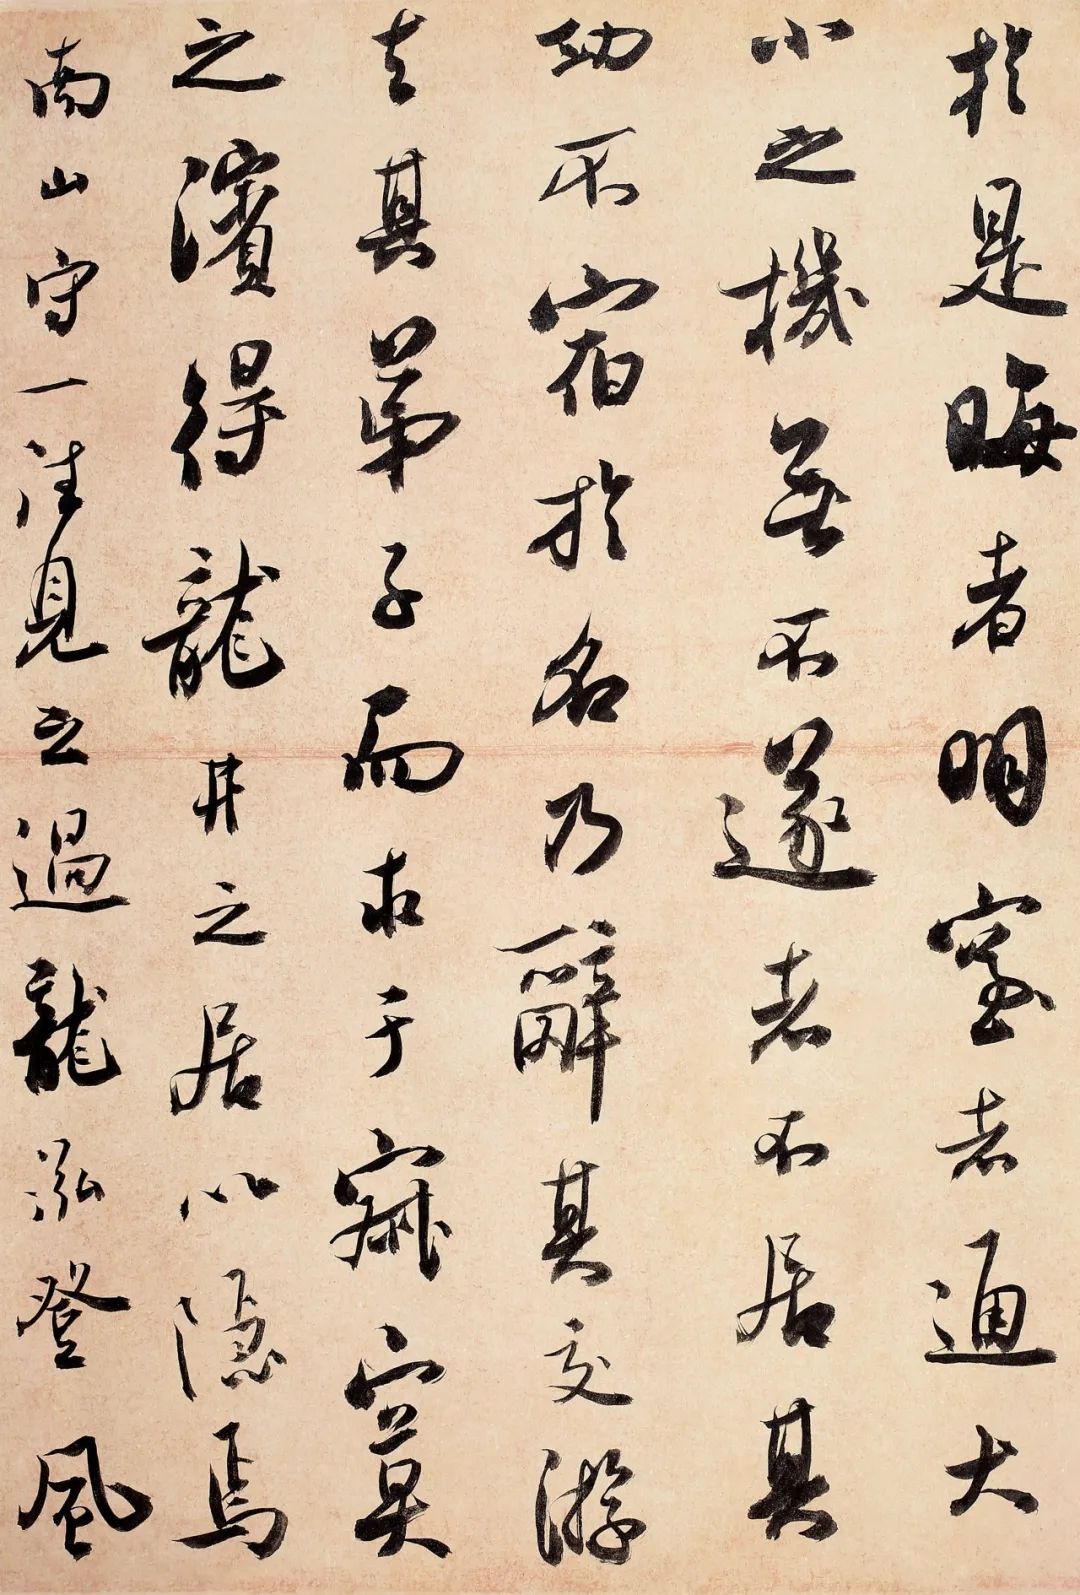 於是晦者明窒者通大
小之機無不遂者不居其
功不宿於名乃辭其交游
去其弟子而求于寂寞
之濱得龍井之居以隱焉
南山守一往見之過龍泓登風